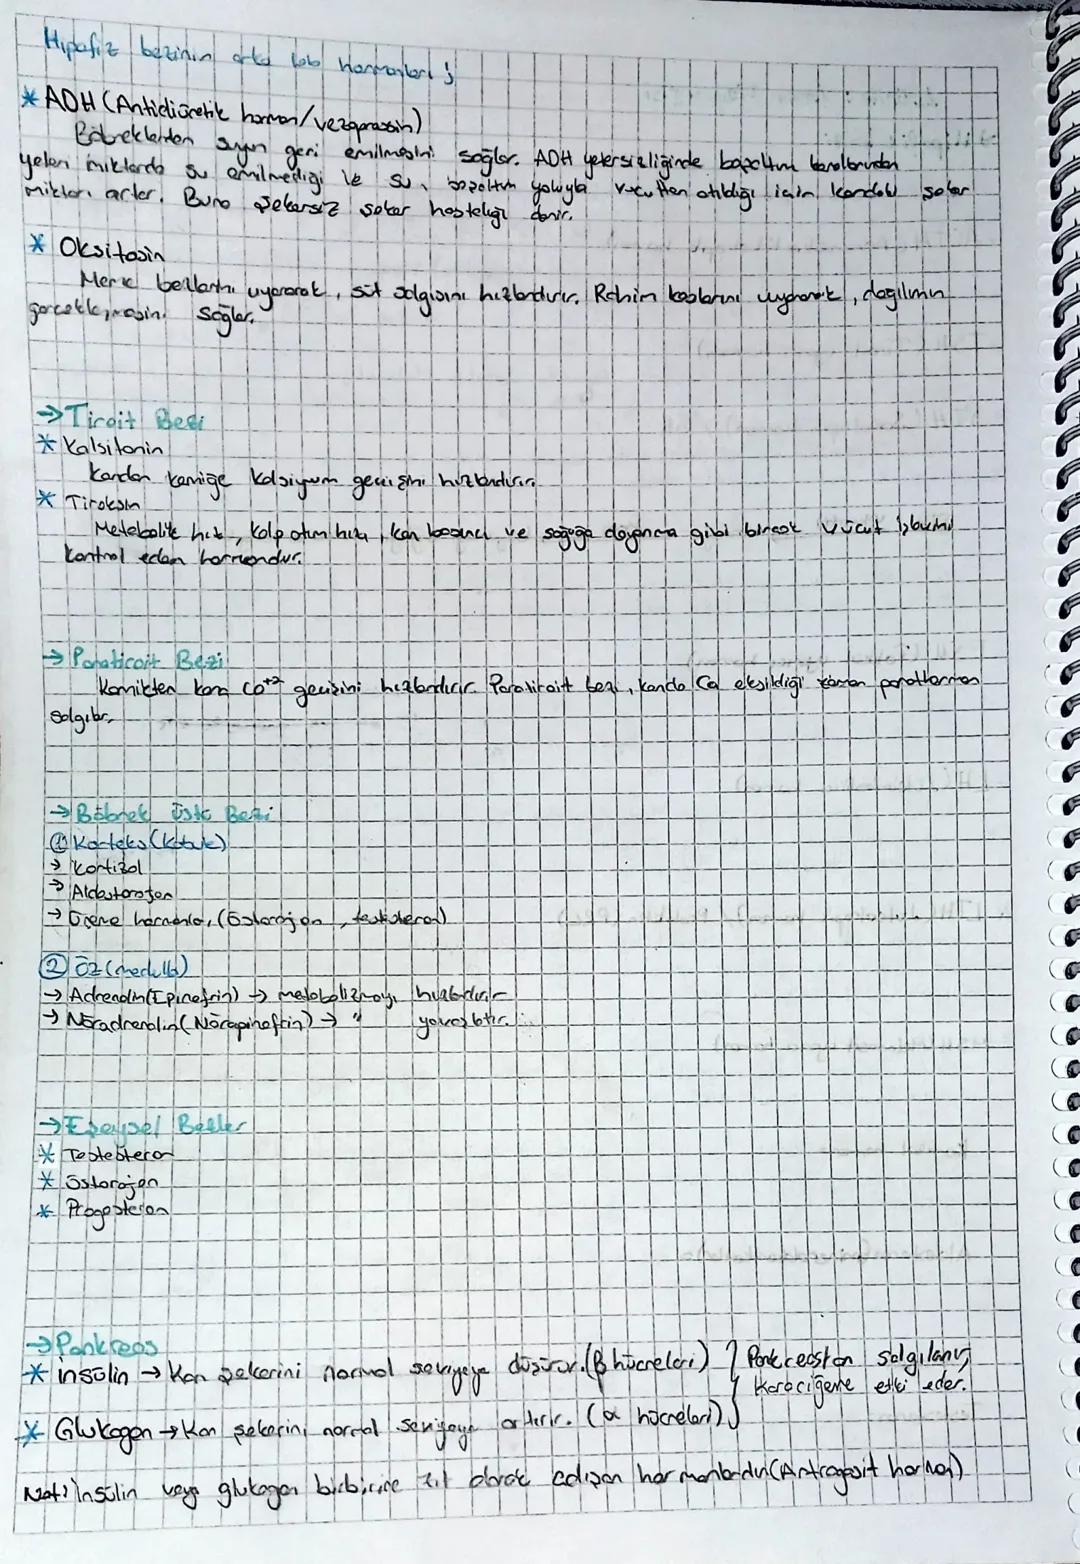 Hipofiz bezinin arka lob hormonları ;
* ADH (Antidiüretik hormon/vezopressin)
Böbreklerden suyun geri emilmesini sağlar. ADH yetersizliğinde boşaltım kanallarından
yeteri miktarda su emilmediği ve su, boşaltım yoluyla vücuttan atıldığı için kandaki şeker
miktarı artar. Buna şekersiz şeker hastalığı denir.
* Oksitosin
Meme bezlerini uyararak, süt salgısını hızlandırır. Rahim kaslarını uyararak, doğumun
gerçekleşmesini sağlar.
→ Tiroit Bezi
* Kalsitonin
Kandan kemiğe kalsiyum geçişini hızlandırır.
* Tiroksin
Metabolik hız, kalp atım hızı, kan basıncı ve soğuğa dayanma gibi birçok vücut işlevini
kontrol eden hormondur.
→ Paratiroit Bezi
Kemikten kana Ca+2 geçişini hızlandırır. Paratiroit bezi, kanda Ca eksildiği zaman parathormon
salgılar.
→ Böbrek Üstü Bezi
① Korteks (Kabuk)
→ Kortizol
→ Aldosteron
→ Üreme hormonları (Östorojen, testosteron)
② Öz (medulla)
→ Adrenalin (Epinefrin) → metabolizmayı hızlandırır
→ Nöradrenalin (Nörepinefrin) → " yavaşlatır.
→ Eşeysel Bezler
* Testesteron
* Östorojen
* Progesteron
→ Pankreas
* insülin → Kan şekerini normal seviyeye düşürür. (β hücreleri) } Pankreastan salgılanır,
karaciğere etki eder.
* Glukagon → Kan şekerini normal seviyeye artırır. (α hücreleri)
Not: İnsülin veya glukagon birbirine zıt olarak çalışan hormonlardır (Antagosit hormon)